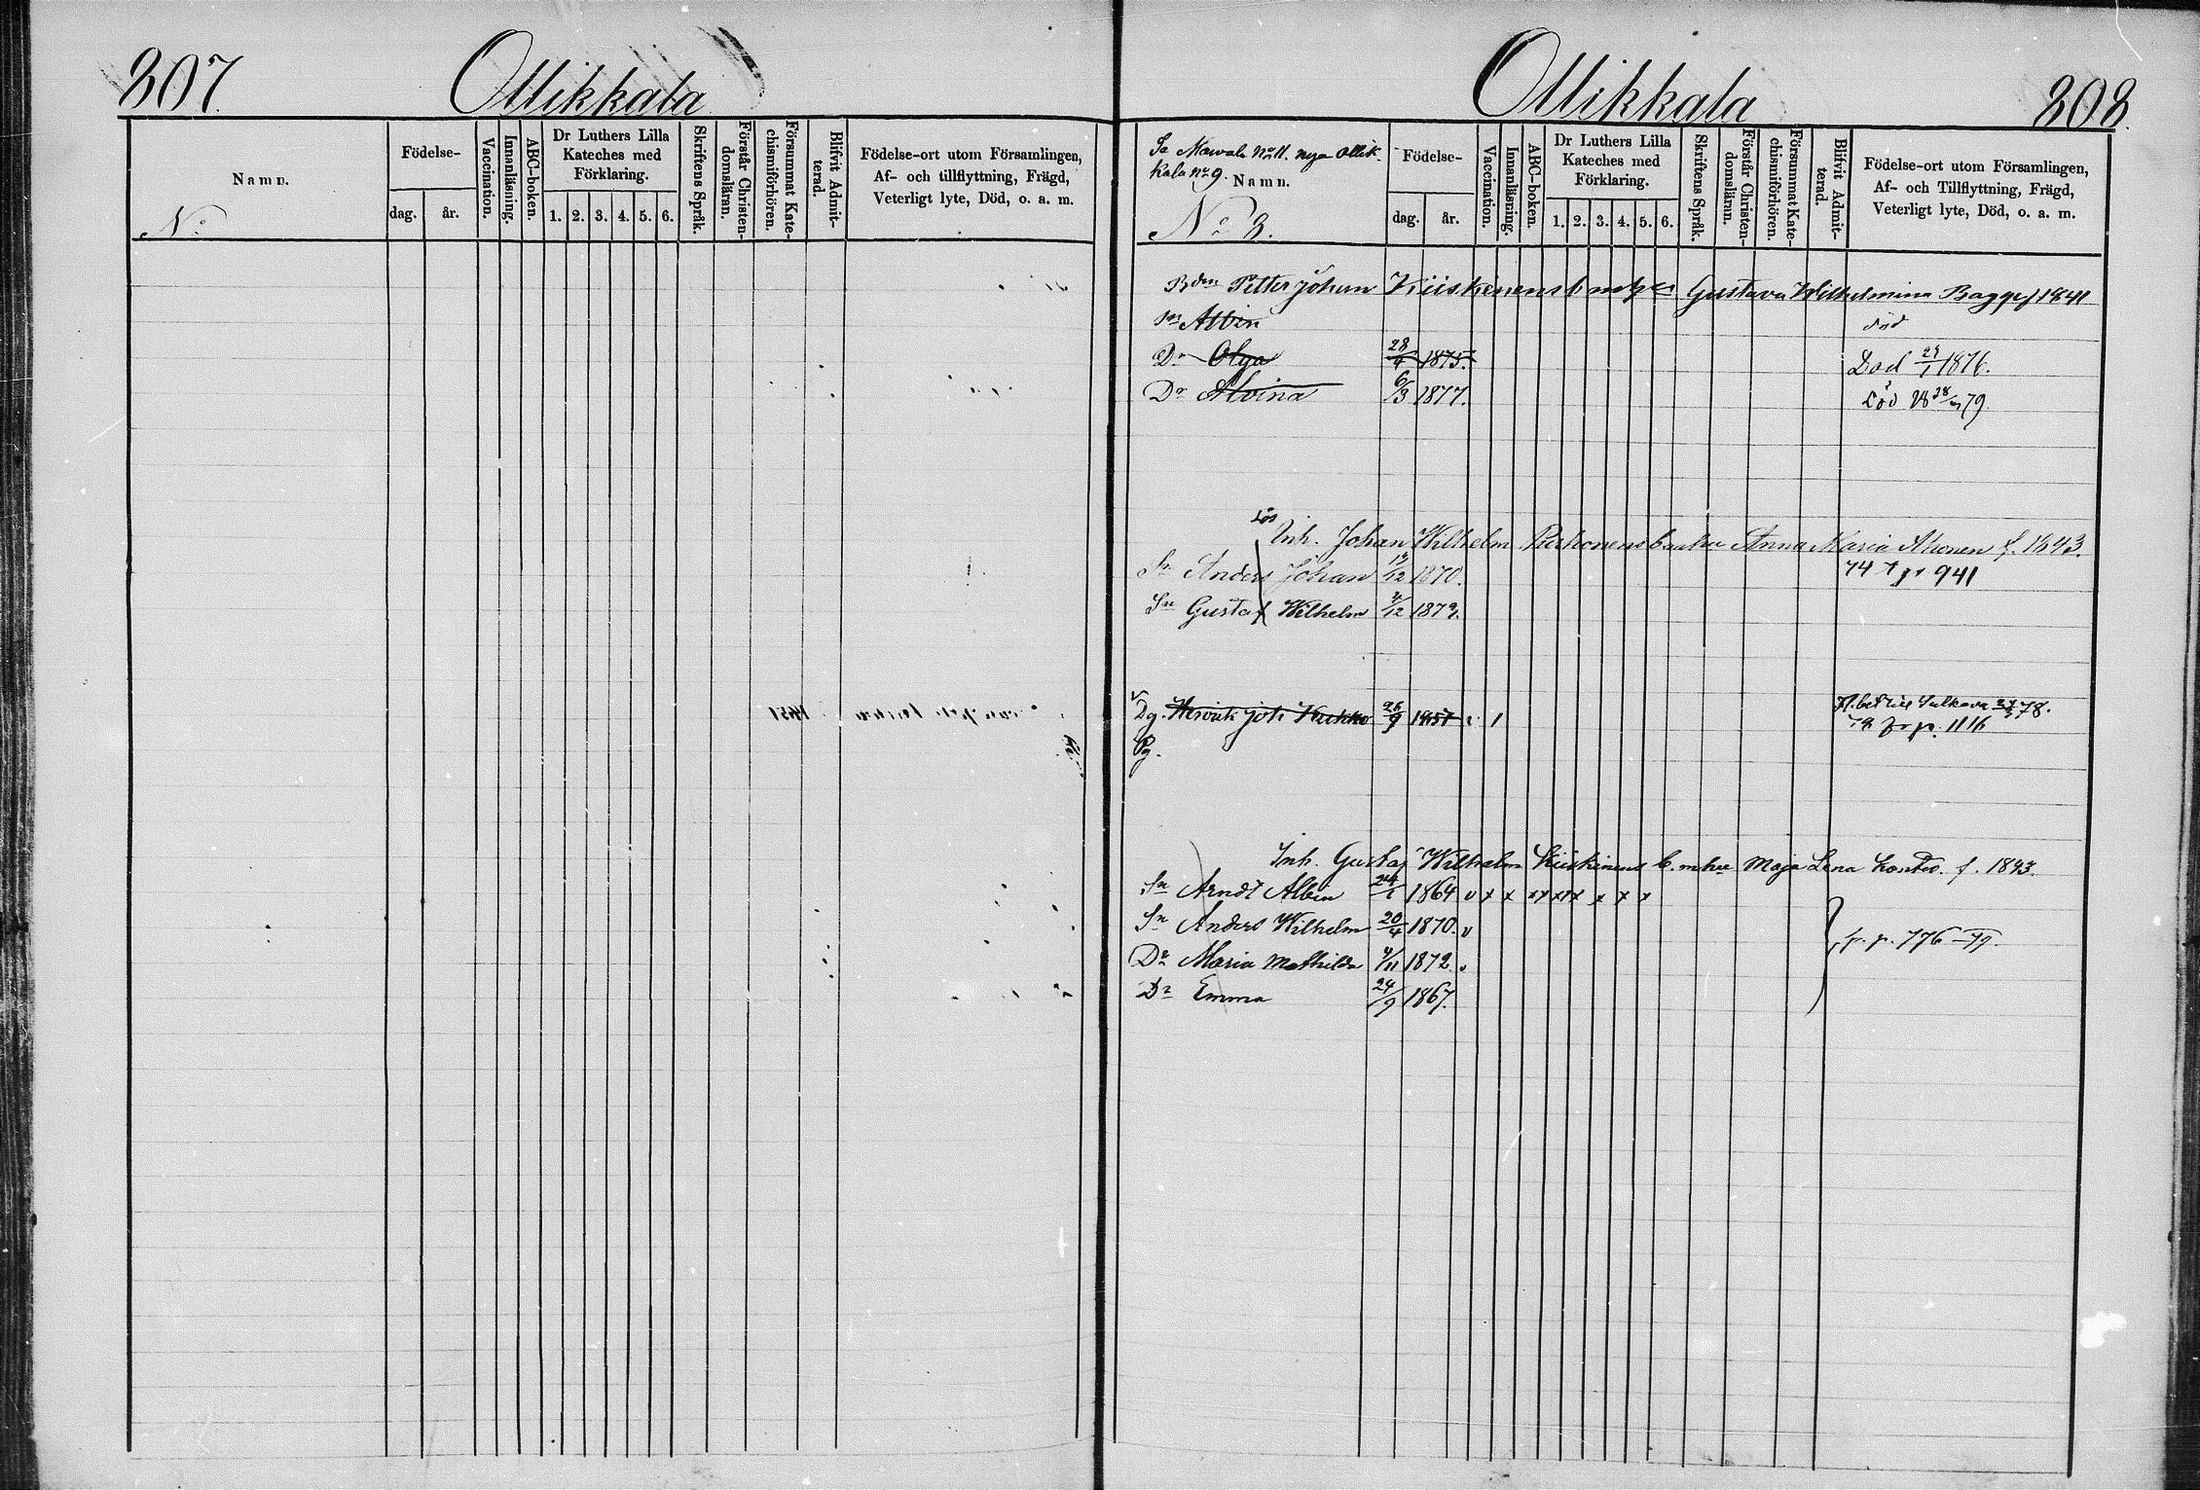 807.
Ollikkala
Namn.
No
Födelse-
dag.
år.
Vaccination.
Innanläsning.
ABC-boken.
Dr Luthers Lilla
Kateches med
Förklaring.
1. 2. 3. 4. 5. 6.
Skriftens Språk.
Förstår Christen-
domsläran.
Försummat Kate-
chismiförhören.
Blifvit Admit-
terad.
Födelse-ort utom Församlingen,
Af- och tillflyttning, Frägd,
Veterligt lyte, Död, o. a. m.
Ollikkala
808.
Se Mawala No 11. nya Ollik-
kala no 9.
Namn.
No 8.
Födelse-
dag.
år.
Vaccination.
Innanläsning.
ABC-boken.
Dr Luthers Lilla
Kateches med
Förklaring.
1. 2. 3. 4. 5. 6.
Skriftens Språk.
Förstår Christen-
domsläran.
Försummat Kate-
chismiförhören.
Blifvit Admit-
terad.
Födelse-ort utom Församlingen,
Af- och Tillflyttning, Frägd,
Veterligt lyte, Död, o. a. m.
Bdn Petter Johan Kiiskinens Gustava Wilhelmina Bagge f 1841
Sn Albin död
Dr Olga 28/4 1875. Död 1876.
Dr Alvina 6/3 1877. Död 79.
Inh. Johan Wilhelm Anna Maria f. 1843.
Sn Anders Johan 1870. 74 941
Sn Gustaf Wilhelm 1879.
Dg. Joh 26/9 1857 1 Sulkava 78.
78 fr p. 1116
Pg.
Inh. Gustaf Wilhelm Kiiskinens b. mhu Maja Lena f. 1843.
Sn Arndt Albin 24/1 1864 v x x x x x x
Sn Anders Wilhelm 20/4 1870. v
Dr Maria Mathilda 4/11 1872. fr. p. 776 - 79.
Dr Emma 24/9 1867.